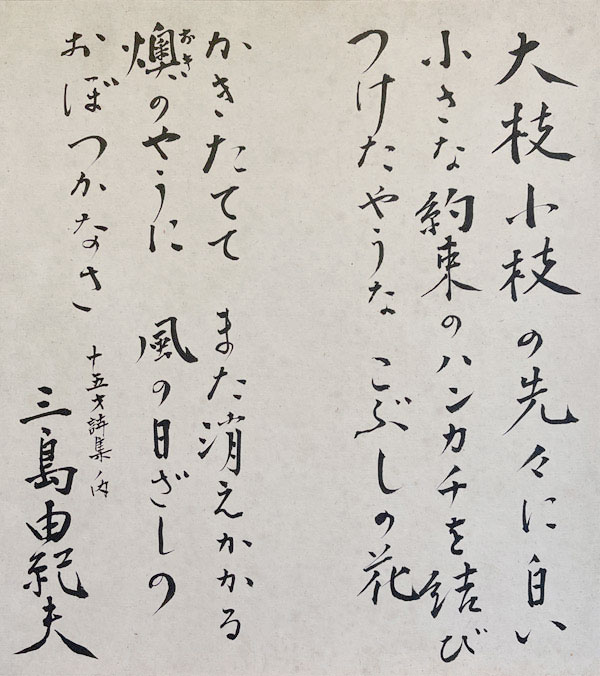 大枝小枝の先々に白い
小さな約束のハンカチを結び
つけたやうな こぶしの花
かきたてて また消えかかる
燠のやうに 風の日ざしの
おき
おぼつかなさ
十五才詩集ノ内
三島由紀夫